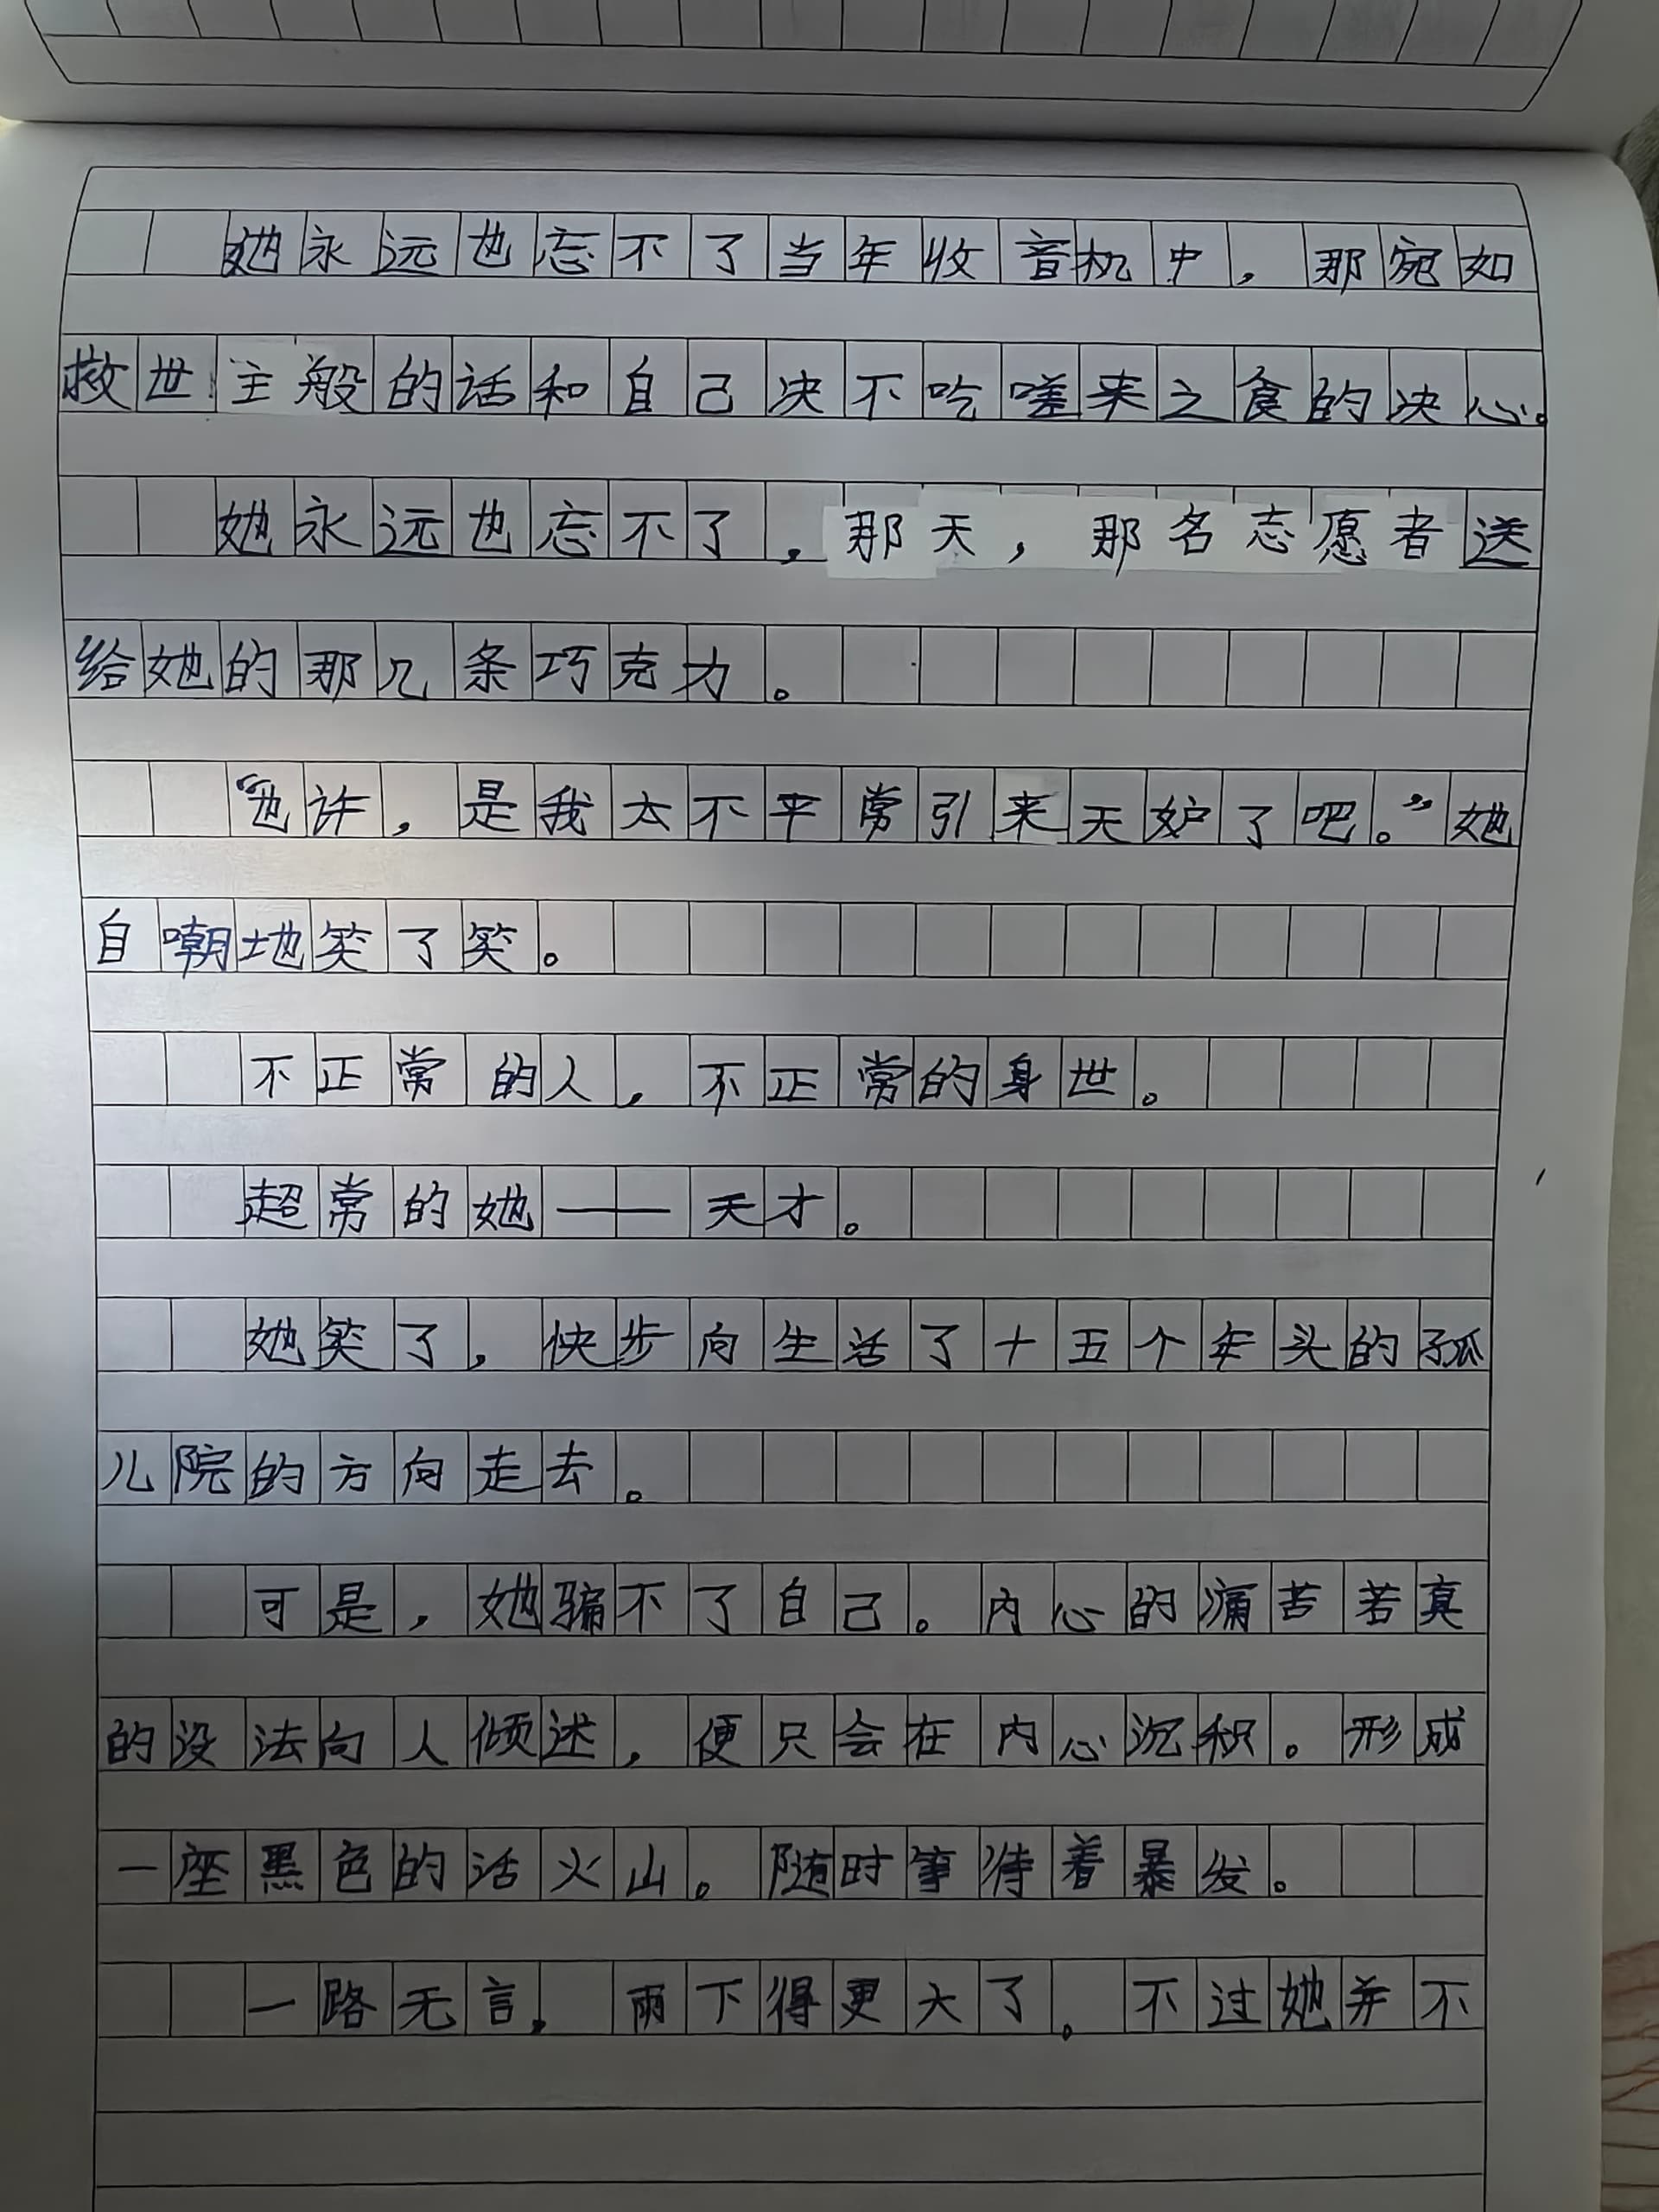 她永远也忘不了当年收音机中，那宛如
救世主般的话和自己决不吃嗟来之食的决心。
她永远也忘不了，那天，那名志愿者送
给她的那几条巧克力。
“也许，是我太不平常引来天妒了吧。”她
自嘲地笑了笑。
不正常的人，不正常的身世。
超常的她——天才。
她笑了，快步向生活了十五个年头的孤
儿院的方向走去。
可是，她骗不了自己。内心的痛苦若真
的没法向人倾述，便只会在内心沉积。形成
一座黑色的活火山。随时等待着暴发。
一路无言，雨下得更大了。不过她并不